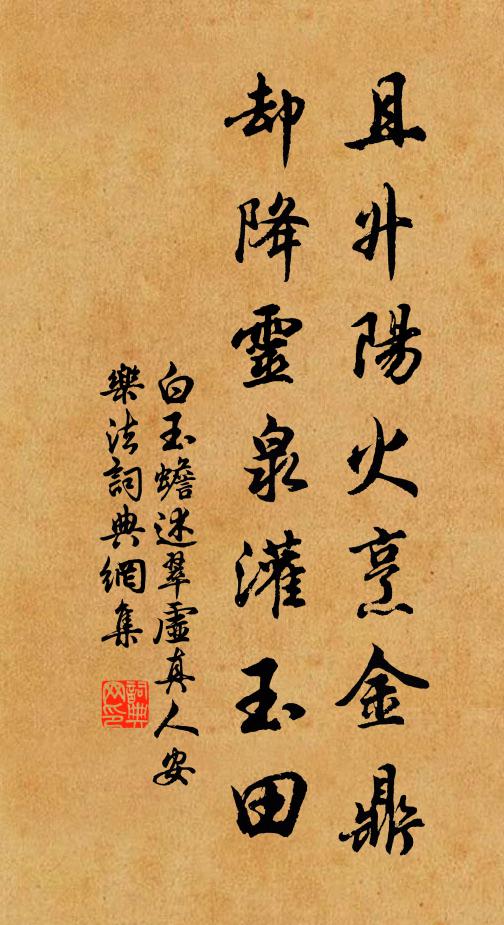 且升陽火烹金鼎
却降靈泉灌玉田
白玉蟾述翠虛真人安
樂法詞典網集
詞典網印